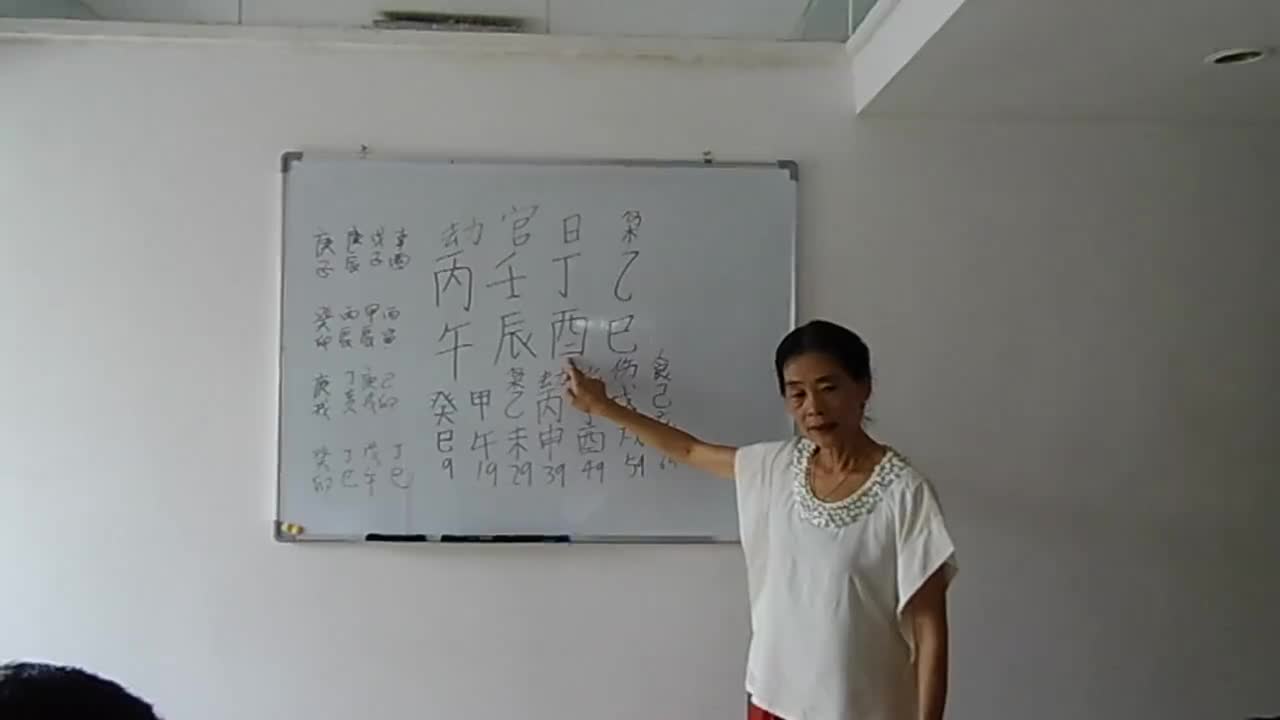 劫 官 日 枭
丙 壬 丁 乙
午 辰 酉 巳
枭 劫 伤 食
癸 甲 乙 丙 戊 己
巳 午 未 申 酉 戌
9 19 29 39 49 59
庚 庚 戊 辛
子 辰 子 酉
癸 丙 甲 丙
卯 辰 辰 寅
庚 丁 庚 己
戌 亥 戌 卯
癸 丁 戊 丁
卯 巳 午 巳